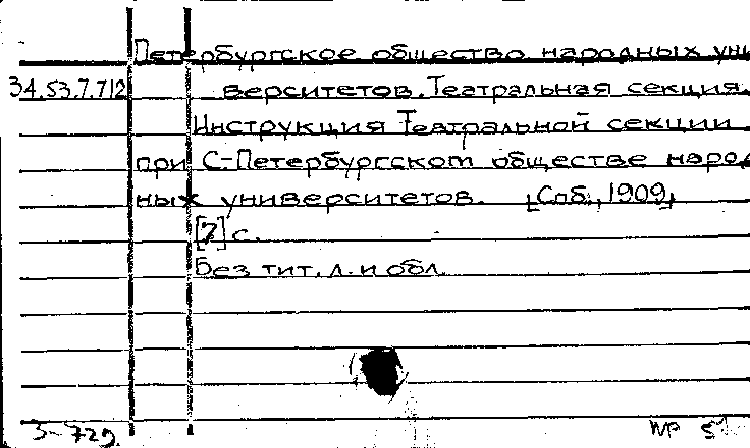 Петербургское общество народных уни
34.53.7.712 верситетов. Театральная секция.
Инструкция Театральной секции
при С-Петербургском обществе народ
ных университетов. [Спб., 1909]
[7] с.
Без тит. л. и обл.
3-729.